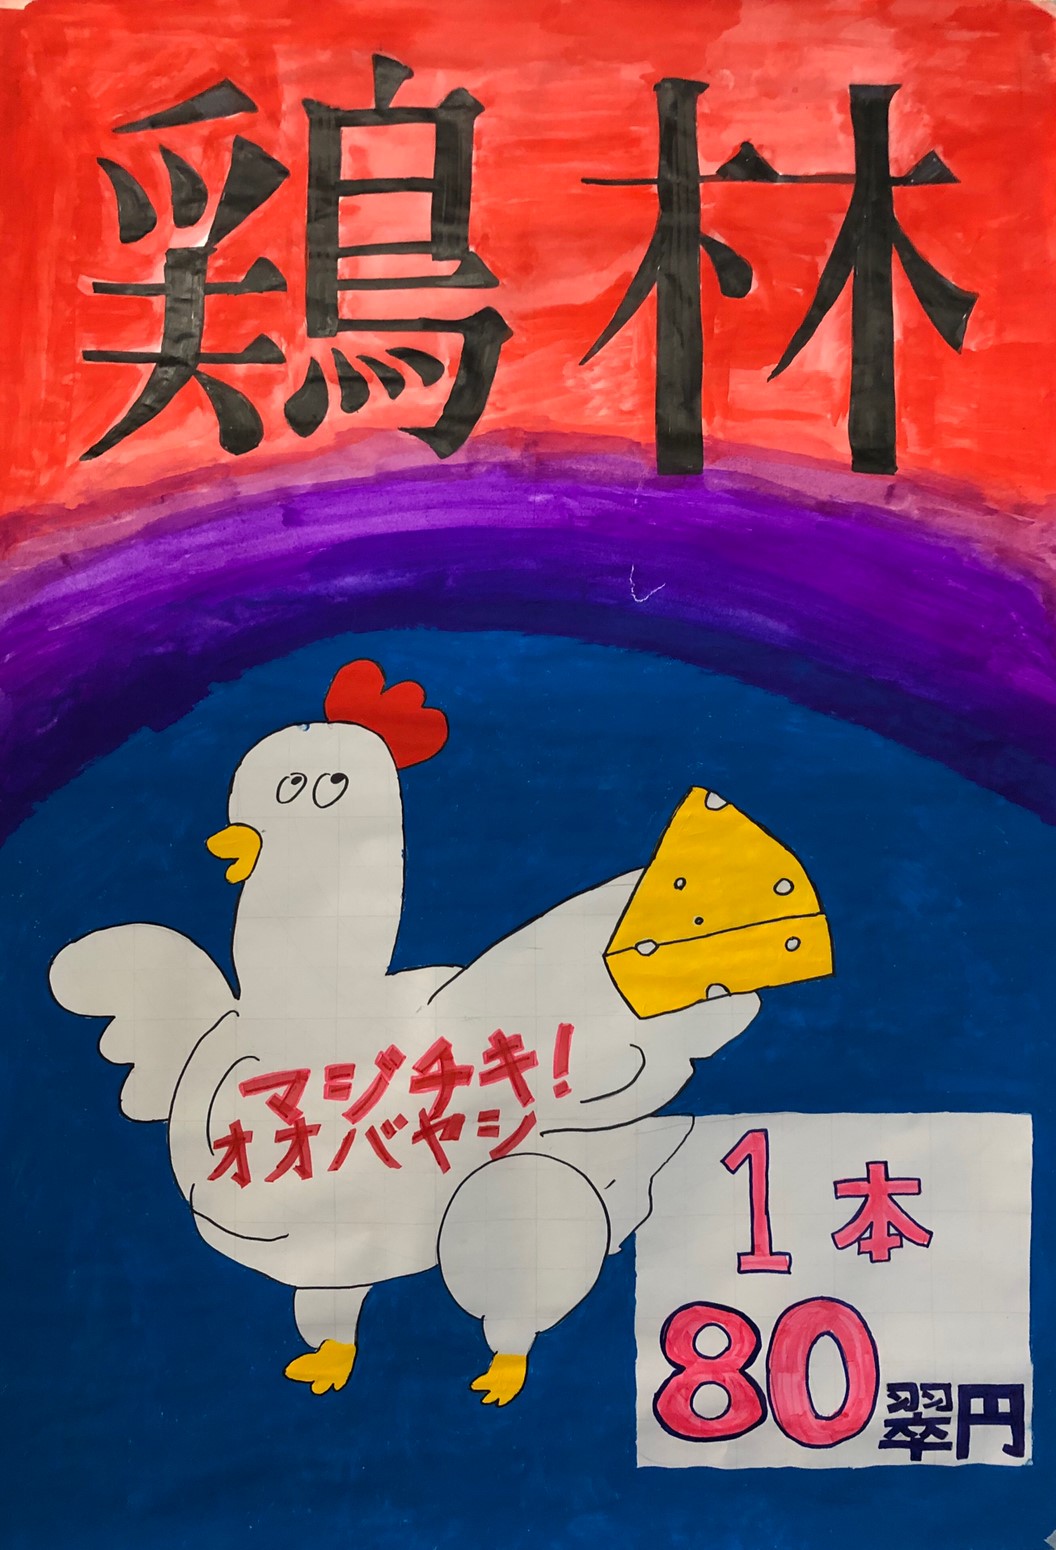 鶏林
マジチキ!
オオバヤシ
1本
80翠円